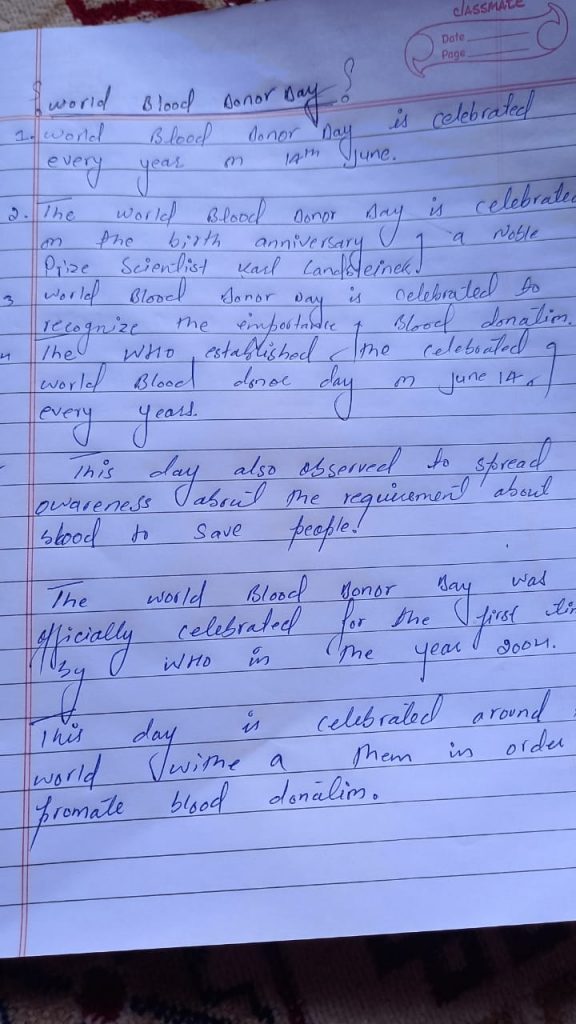 CLASSMATE
Date
Page
{ World Blood Donor Day }
1. World Blood Donor Day is celebrated
every year on 14th June.
2. The World Blood Donor Day is celebrated
on the birth anniversary of a Noble
Prize Scientist Karl Landsteiner.
3 World Blood Donor Day is celebrated to
recognize the importance of Blood donation.
4 The WHO established the celebrated of
World Blood donor day on June 14
every years.
This day also observed to spread
owareness about the requirement about
blood to save people.
The World Blood Donor Day was
officially celebrated for the first tim
by WHO in the year 2004.
This day is celebrated around
world withe a them in order
promate blood donation.